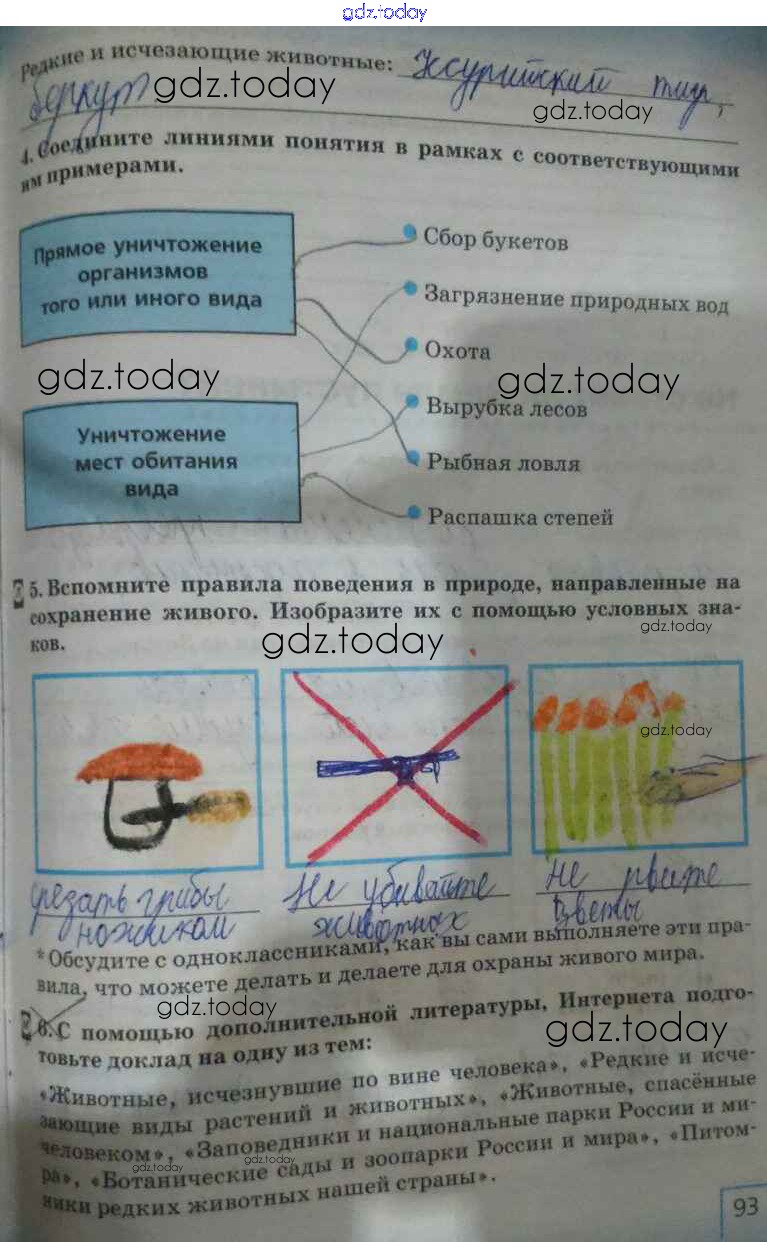 gdz.today
Редкие и исчезающие животные: Уссурийский тигр,
беркут gdz.today gdz.today
4. Соедините линиями понятия в рамках с соответствующими
им примерами.
Прямое уничтожение
организмов
того или иного вида
Сбор букетов
Загрязнение природных вод
Охота
gdz.today gdz.today
Вырубка лесов
Уничтожение
мест обитания
вида
Рыбная ловля
Распашка степей
5. Вспомните правила поведения в природе, направленные на
сохранение живого. Изобразите их с помощью условных зна-
ков.
gdz.today gdz.today
gdz.today
резать грибы
ножиком
Не убивайте
животных
не рвите
цветы
*Обсудите с одноклассниками, как вы сами выполняете эти пра-
вила, что можете делать и делаете для охраны живого мира.
gdz.today gdz.today
6. С помощью дополнительной литературы, Интернета подго-
товьте доклад на одну из тем:
«Животные, исчезнувшие по вине человека», «Редкие и исче-
зающие виды растений и животных», «Животные, спасённые
человеком», «Заповедники и национальные парки России и ми-
ра», «Ботанические сады и зоопарки России и мира», «Питом-
ники редких животных нашей страны».
gdz.today gdz.today
93